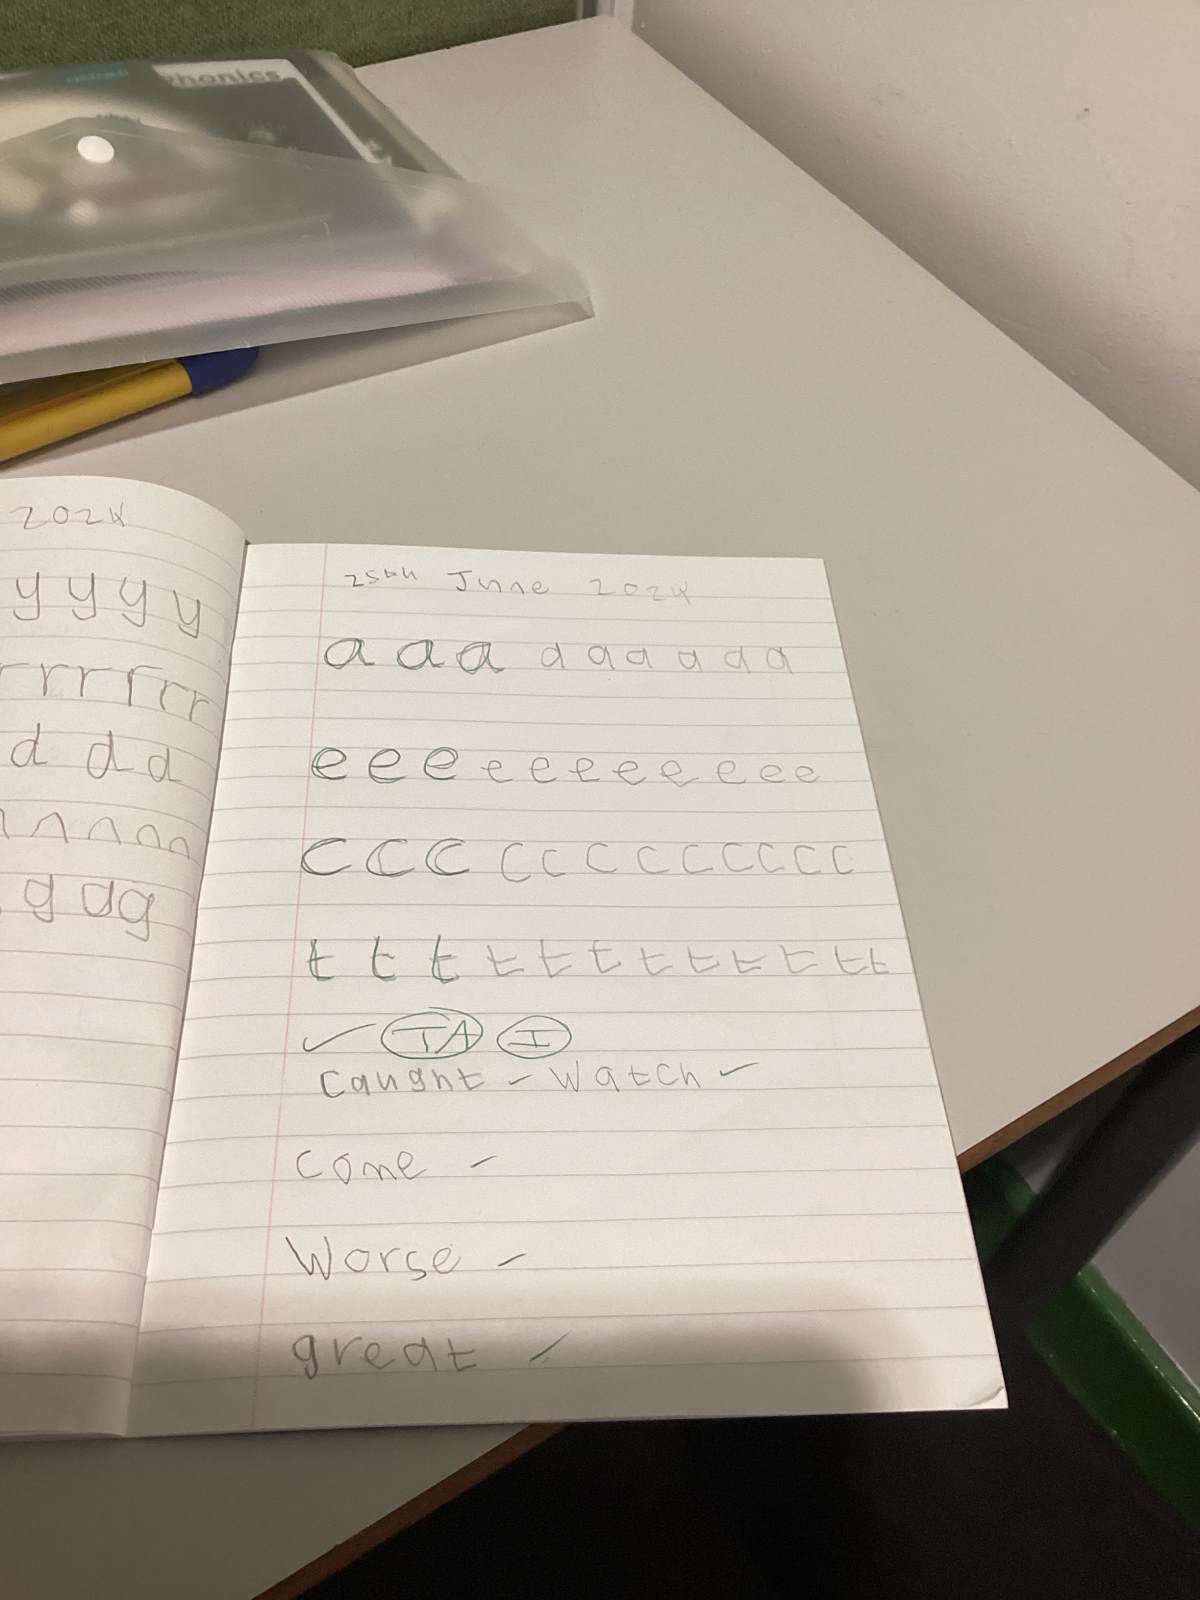 Phonics
2024
y y y y
r r r r r r
d d d
n n n n n
g g g
25th June 2024
a a a a a a a a a
e e e e e e e e e e e
c c c c c c c c c c c c
t t t t t t t t t t t t
✓ TA I
caught ✓ watch ✓
come ✓
worse ✓
great ✓